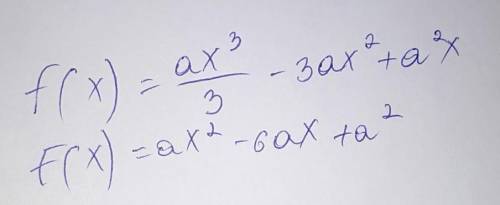 f(x) = ax³/3 - 3ax² + a²x
F(x) = ax² - 6ax + a²